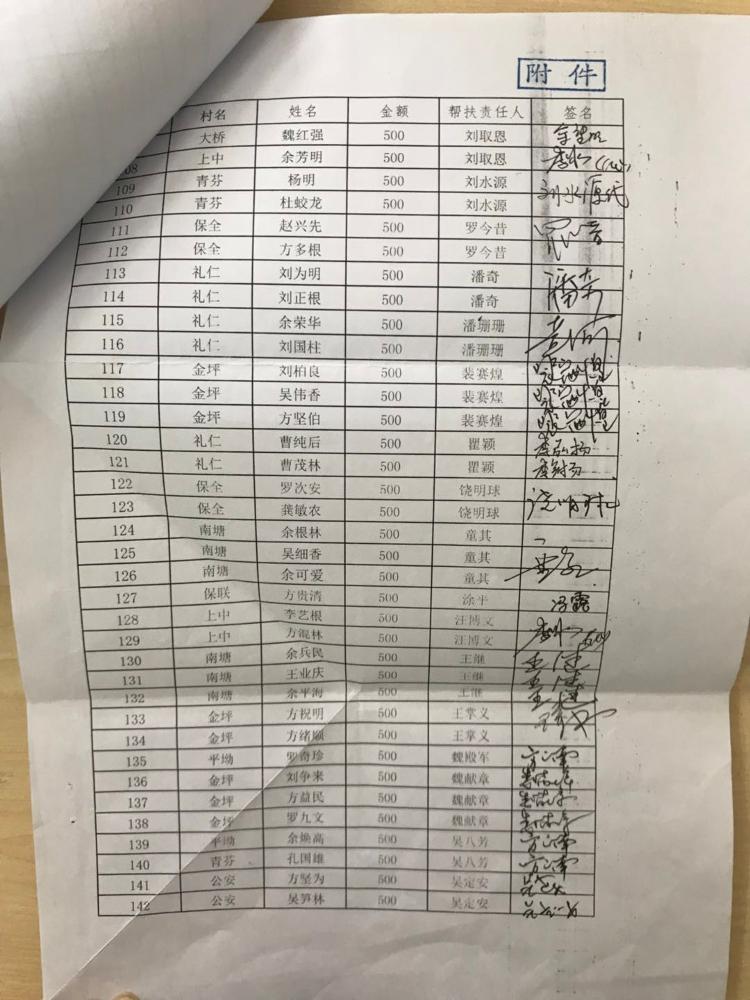 附 件
村名 姓名 金额 帮扶责任人 签名
大桥 魏红强 500 刘取恩
08 上中 余芳明 500 刘取恩
109 青芬 杨明 500 刘水源 刘水源代
110 青芬 杜蛟龙 500 刘水源
111 保全 赵兴先 500 罗今昔
112 保全 方多根 500 罗今昔
113 礼仁 刘为明 500 潘奇 潘奇
114 礼仁 刘正根 500 潘奇
115 礼仁 余荣华 500 潘珊珊
116 礼仁 刘国柱 500 潘珊珊
117 金坪 刘柏良 500 裴赛煌
118 金坪 吴伟香 500 裴赛煌
119 金坪 方坚伯 500 裴赛煌
120 礼仁 曹纯后 500 瞿颖
121 礼仁 曹茂林 500 瞿颖
122 保全 罗次安 500 饶明球 饶明球
123 保全 龚敏农 500 饶明球
124 南塘 余根林 500 童其
125 南塘 吴细香 500 童其
126 南塘 余可爱 500 童其
127 保联 方贵清 500 涂平
128 上中 李艺根 500 汪博文
129 上中 方混林 500 汪博文
130 南塘 余兵民 500 王继
131 南塘 王业庆 500 王继
132 南塘 余平海 500 王继
133 金坪 方祝明 500 王掌义
134 金坪 方绪顺 500 王掌义
135 平坳 罗奇珍 500 魏殿军
136 金坪 刘争来 500 魏献章
137 金坪 方益民 500 魏献章
138 金坪 罗九文 500 魏献章
139 平坳 余焕高 500 吴八芳
140 青芬 孔国雄 500 吴八芳
141 公安 方坚为 500 吴定安
142 公安 吴笋林 500 吴定安